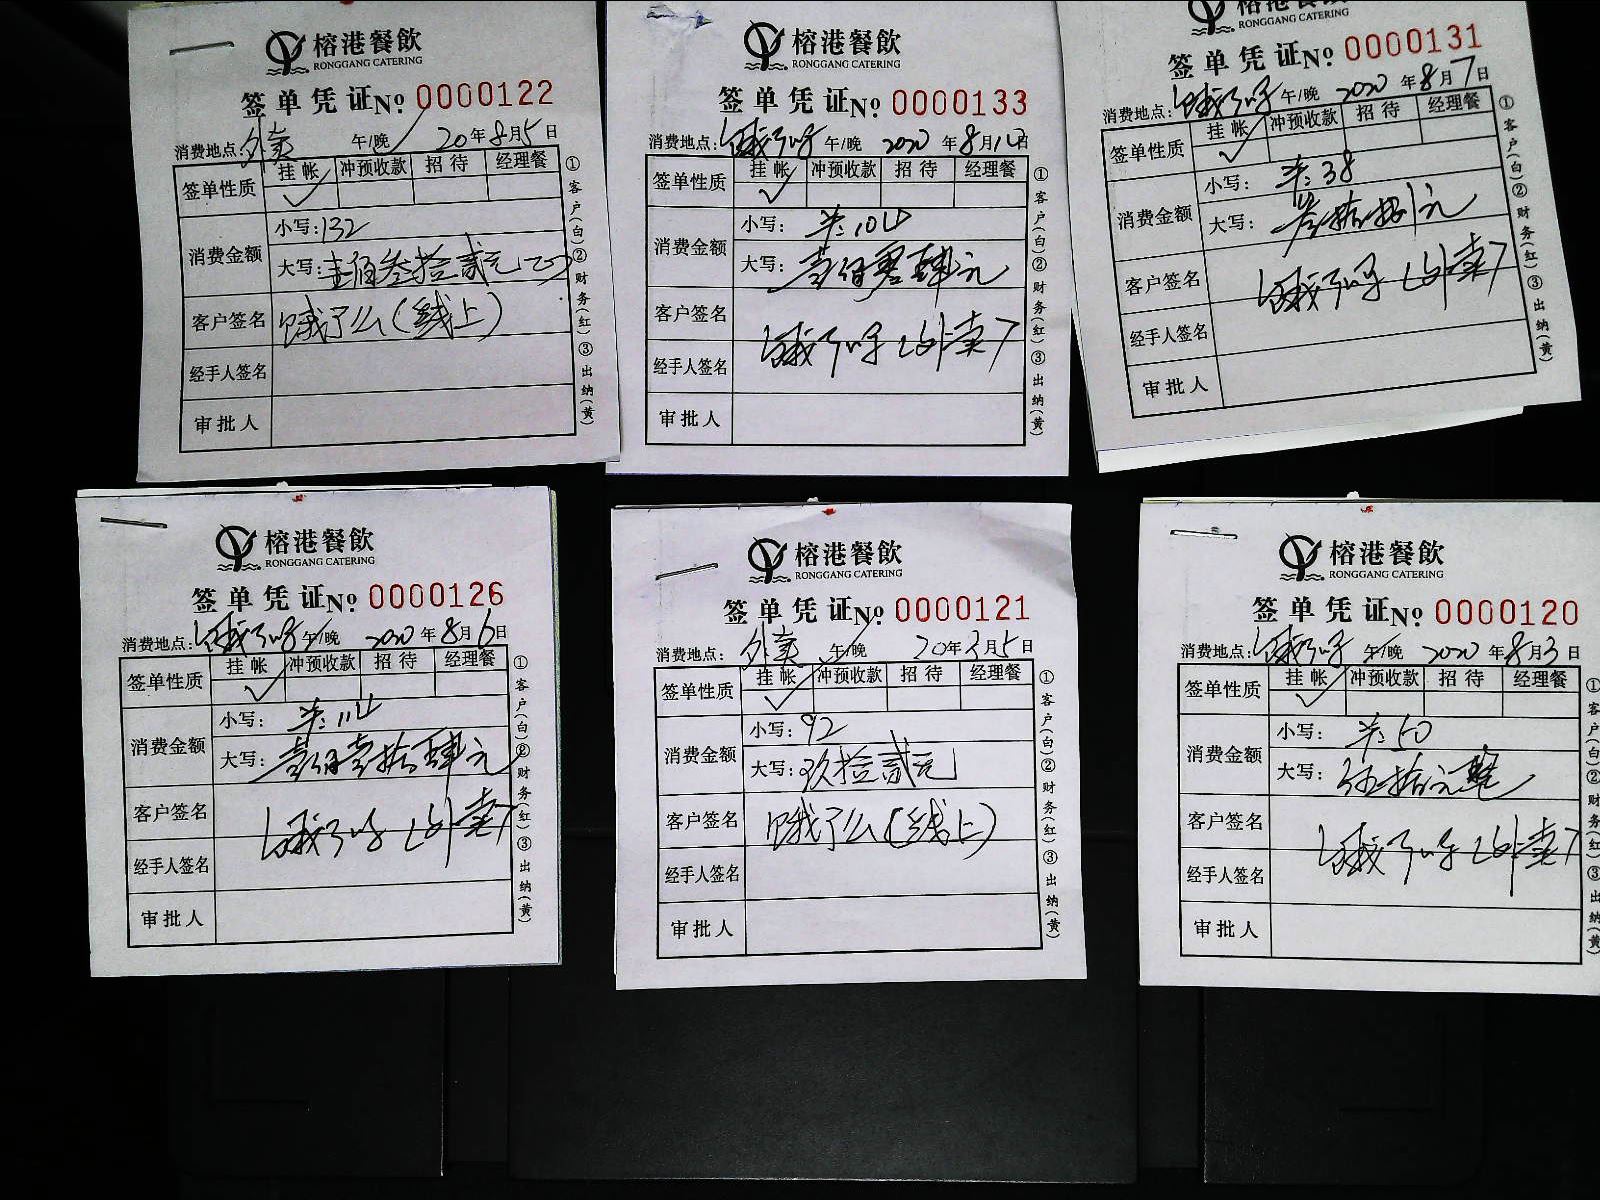 榕港餐飲
RONGGANG CATERING
签单凭证No 0000122
消费地点:外卖 午/晚 20年8月5日
签单性质 挂帐 冲预收款 招待 经理餐
消费金额
小写:132
大写:壹佰叁拾贰元
客户签名 饿了么(线上)
经手人签名
审批人
①客户(白)②财务(红)③出纳(黄)
榕港餐飲
RONGGANG CATERING
签单凭证No 0000133
消费地点:饿了吗 午/晚 2020年8月1日
签单性质 挂帐 冲预收款 招待 经理餐
消费金额
小写:羊:104
大写:壹佰零肆元
客户签名 饿了吗(外卖)
经手人签名
审批人
①客户(白)②财务(红)③出纳(黄)
榕港餐飲
RONGGANG CATERING
签单凭证No 0000131
消费地点:饿了吗 午/晚 2020年8月7日
签单性质 挂帐 冲预收款 招待 经理餐
消费金额
小写:羊:38
大写:叁拾捌元
客户签名 饿了吗(外卖)
经手人签名
审批人
①客户(白)②财务(红)③出纳(黄)
榕港餐飲
RONGGANG CATERING
签单凭证No 0000126
消费地点:饿了吗 午/晚 2020年8月6日
签单性质 挂帐 冲预收款 招待 经理餐
消费金额
小写:羊:114
大写:壹佰壹拾肆元
客户签名 饿了吗(外卖)
经手人签名
审批人
①客户(白)②财务(红)③出纳(黄)
榕港餐飲
RONGGANG CATERING
签单凭证No 0000121
消费地点:外卖 午/晚 20年8月5日
签单性质 挂帐 冲预收款 招待 经理餐
消费金额
小写:92
大写:玖拾贰元
客户签名 饿了么(线上)
经手人签名
审批人
①客户(白)②财务(红)③出纳(黄)
榕港餐飲
RONGGANG CATERING
签单凭证No 0000120
消费地点:饿了吗 午/晚 2020年8月3日
签单性质 挂帐 冲预收款 招待 经理餐
消费金额
小写:羊:50
大写:伍拾元整
客户签名 饿了吗(外卖)
经手人签名
审批人
①客户(白)②财务(红)③出纳(黄)